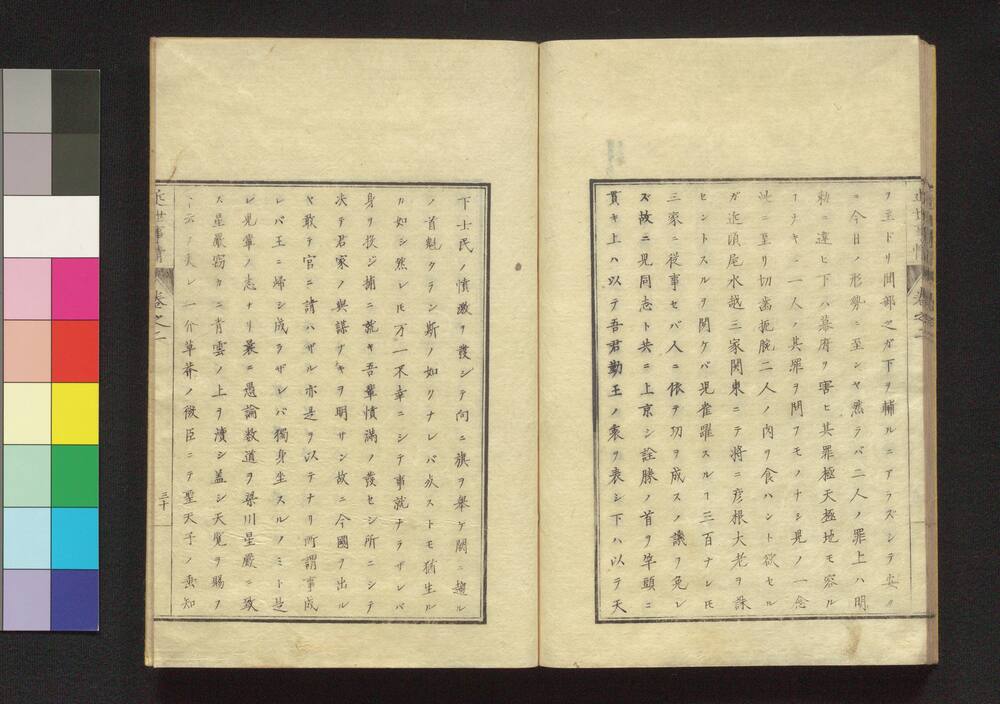 ヲ主ドリ間部之ガ下ヲ輔ルニアラズンデ安ク
ニ今日ノ形勢ニ至ンヤ然ラバ二人ノ罪上ハ明
勅ニ違ヒ下ハ幕府ヲ害ヒ其罪極天極地モ容ル
ヿナキニ一人ノ其罪ヲ問フモノナシ児ノ一念
此ニ至リ切歯扼腕二人ノ肉ヲ食ハント欲セル
ガ近頃尾水越三家関東ニテ将ニ彦根大老ヲ誅
セントスルヲ聞ケバ児雀躍スルヿ三百ナレ𪜈
三家ニ従事セバ人ニ依テ功ヲ成スノ譏ヲ免レ
ズ故ニ児同志ト共ニ上京シ詮勝ノ首ヲ竿頭ニ
貫キ上ハ以テ吾君勤王ノ衷ヲ表シ下ハ以テ天
下士民ノ憤激ヲ發シテ向ニ旗ヲ舉ゲ闕ニ趨ル
ノ首魁タラン斯ノ如クナレバ死ストモ猶生ル
カ如シ然レ𪜈万一不幸ニシテ事就ナラザレバ
身ヲ投ジ捕ニ就キ吾輩憤滿ノ發セシ所ニシテ
决テ君家ノ與謀ナキヲ明サン故ニ今國ヲ出ル
ヤ敢テ官ニ請ハザル亦是ヲ以テナリ所謂事成
レバ王ニ歸シ成ラザレバ獨身坐スルノミト是
レ児輩ノ志ナリ曩ニ愚論数道ヲ梁川星巌ニ致
ス星巌窃カニ青雲ノ上ヲ瀆シ盖シ天覧ヲ賜フ
ト云フ夫レ一介草莽ノ微臣ニテ聖天子ノ垂知
近世事情 卷之二
三十